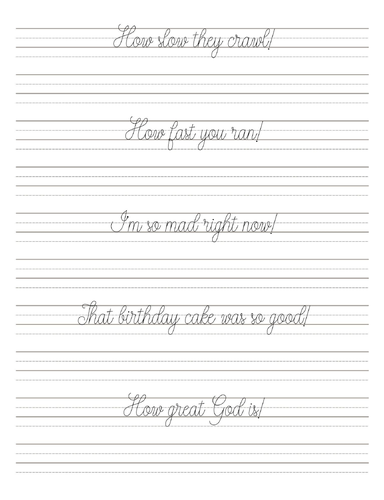 How slow they crawl!
How fast you ran!
I'm so mad right now!
That birthday cake was so good!
How great God is!